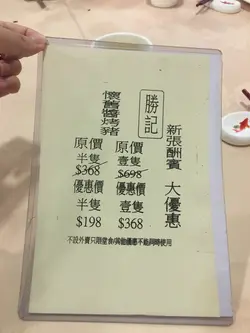 勝記
新張酬賓 大優惠
懷舊醬烤豬
原價 原價
半隻 壹隻
$368 $698
優惠價 優惠價
半隻 壹隻
$198 $368
不設外賣只限堂食/與其他優惠不能同時使用